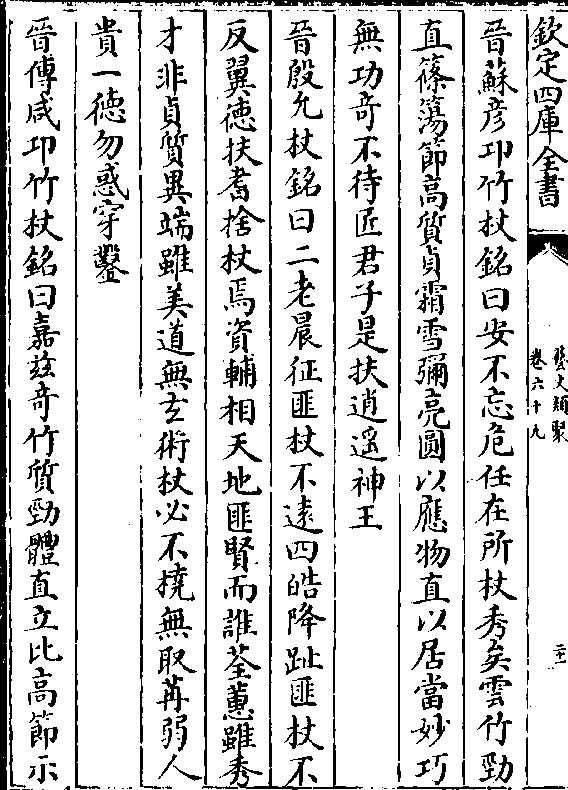 欽定四庫全書
藝文類聚
卷六十九
二十一
晉蘇彦卭竹杖銘曰安不忘危任在所杖秀矣雲竹勁
直篠簜節高質貞霜雪彌亮圓以應物直以居當妙巧
無功奇不待匠君子是扶逍遥神王
晉殷允杖銘曰二老晨征匪杖不逺四皓降趾匪杖不
反翼徳扶耆捨杖焉資輔相天地匪賢而誰荃蕙雖秀
才非貞質異端雖美道無玄術杖必不撓無取苒弱人
貴一徳勿惑穿鑿
晉傅咸卭竹杖銘曰嘉兹奇竹質勁體直立比高節示